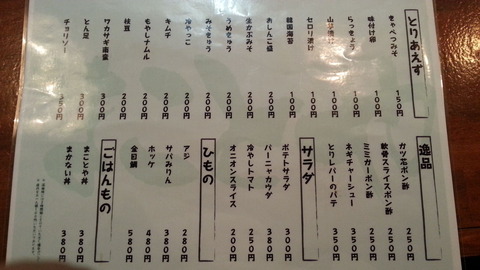 とりあえず
きゃべつみそ 150円
味付け卵 100円
らっきょう 100円
山芋漬け 100円
セロリ漬け 100円
韓国海苔 100円
おしんこ盛 200円
生かぶみそ 200円
うめきゅう 200円
みそきゅう 200円
冷やっこ 200円
キムチ 200円
もやしナムル 200円
枝豆 200円
ワカサギ南蛮 300円
とん足 300円
チョリソー 350円
逸品
ガツ芯ポン酢 250円
軟骨スライスポン酢 250円
ミミガーポン酢 250円
ネギチャーシュー 350円
とりレバーのパテ 350円
サラダ
ポテトサラダ 300円
バーニャカウダ 380円
冷やしトマト 250円
オニオンスライス 200円
ひもの
アジ 280円
サバみりん 380円
ホッケ 480円
金目鯛 580円
ごはんもの
まことや丼 380円
まかない丼 380円